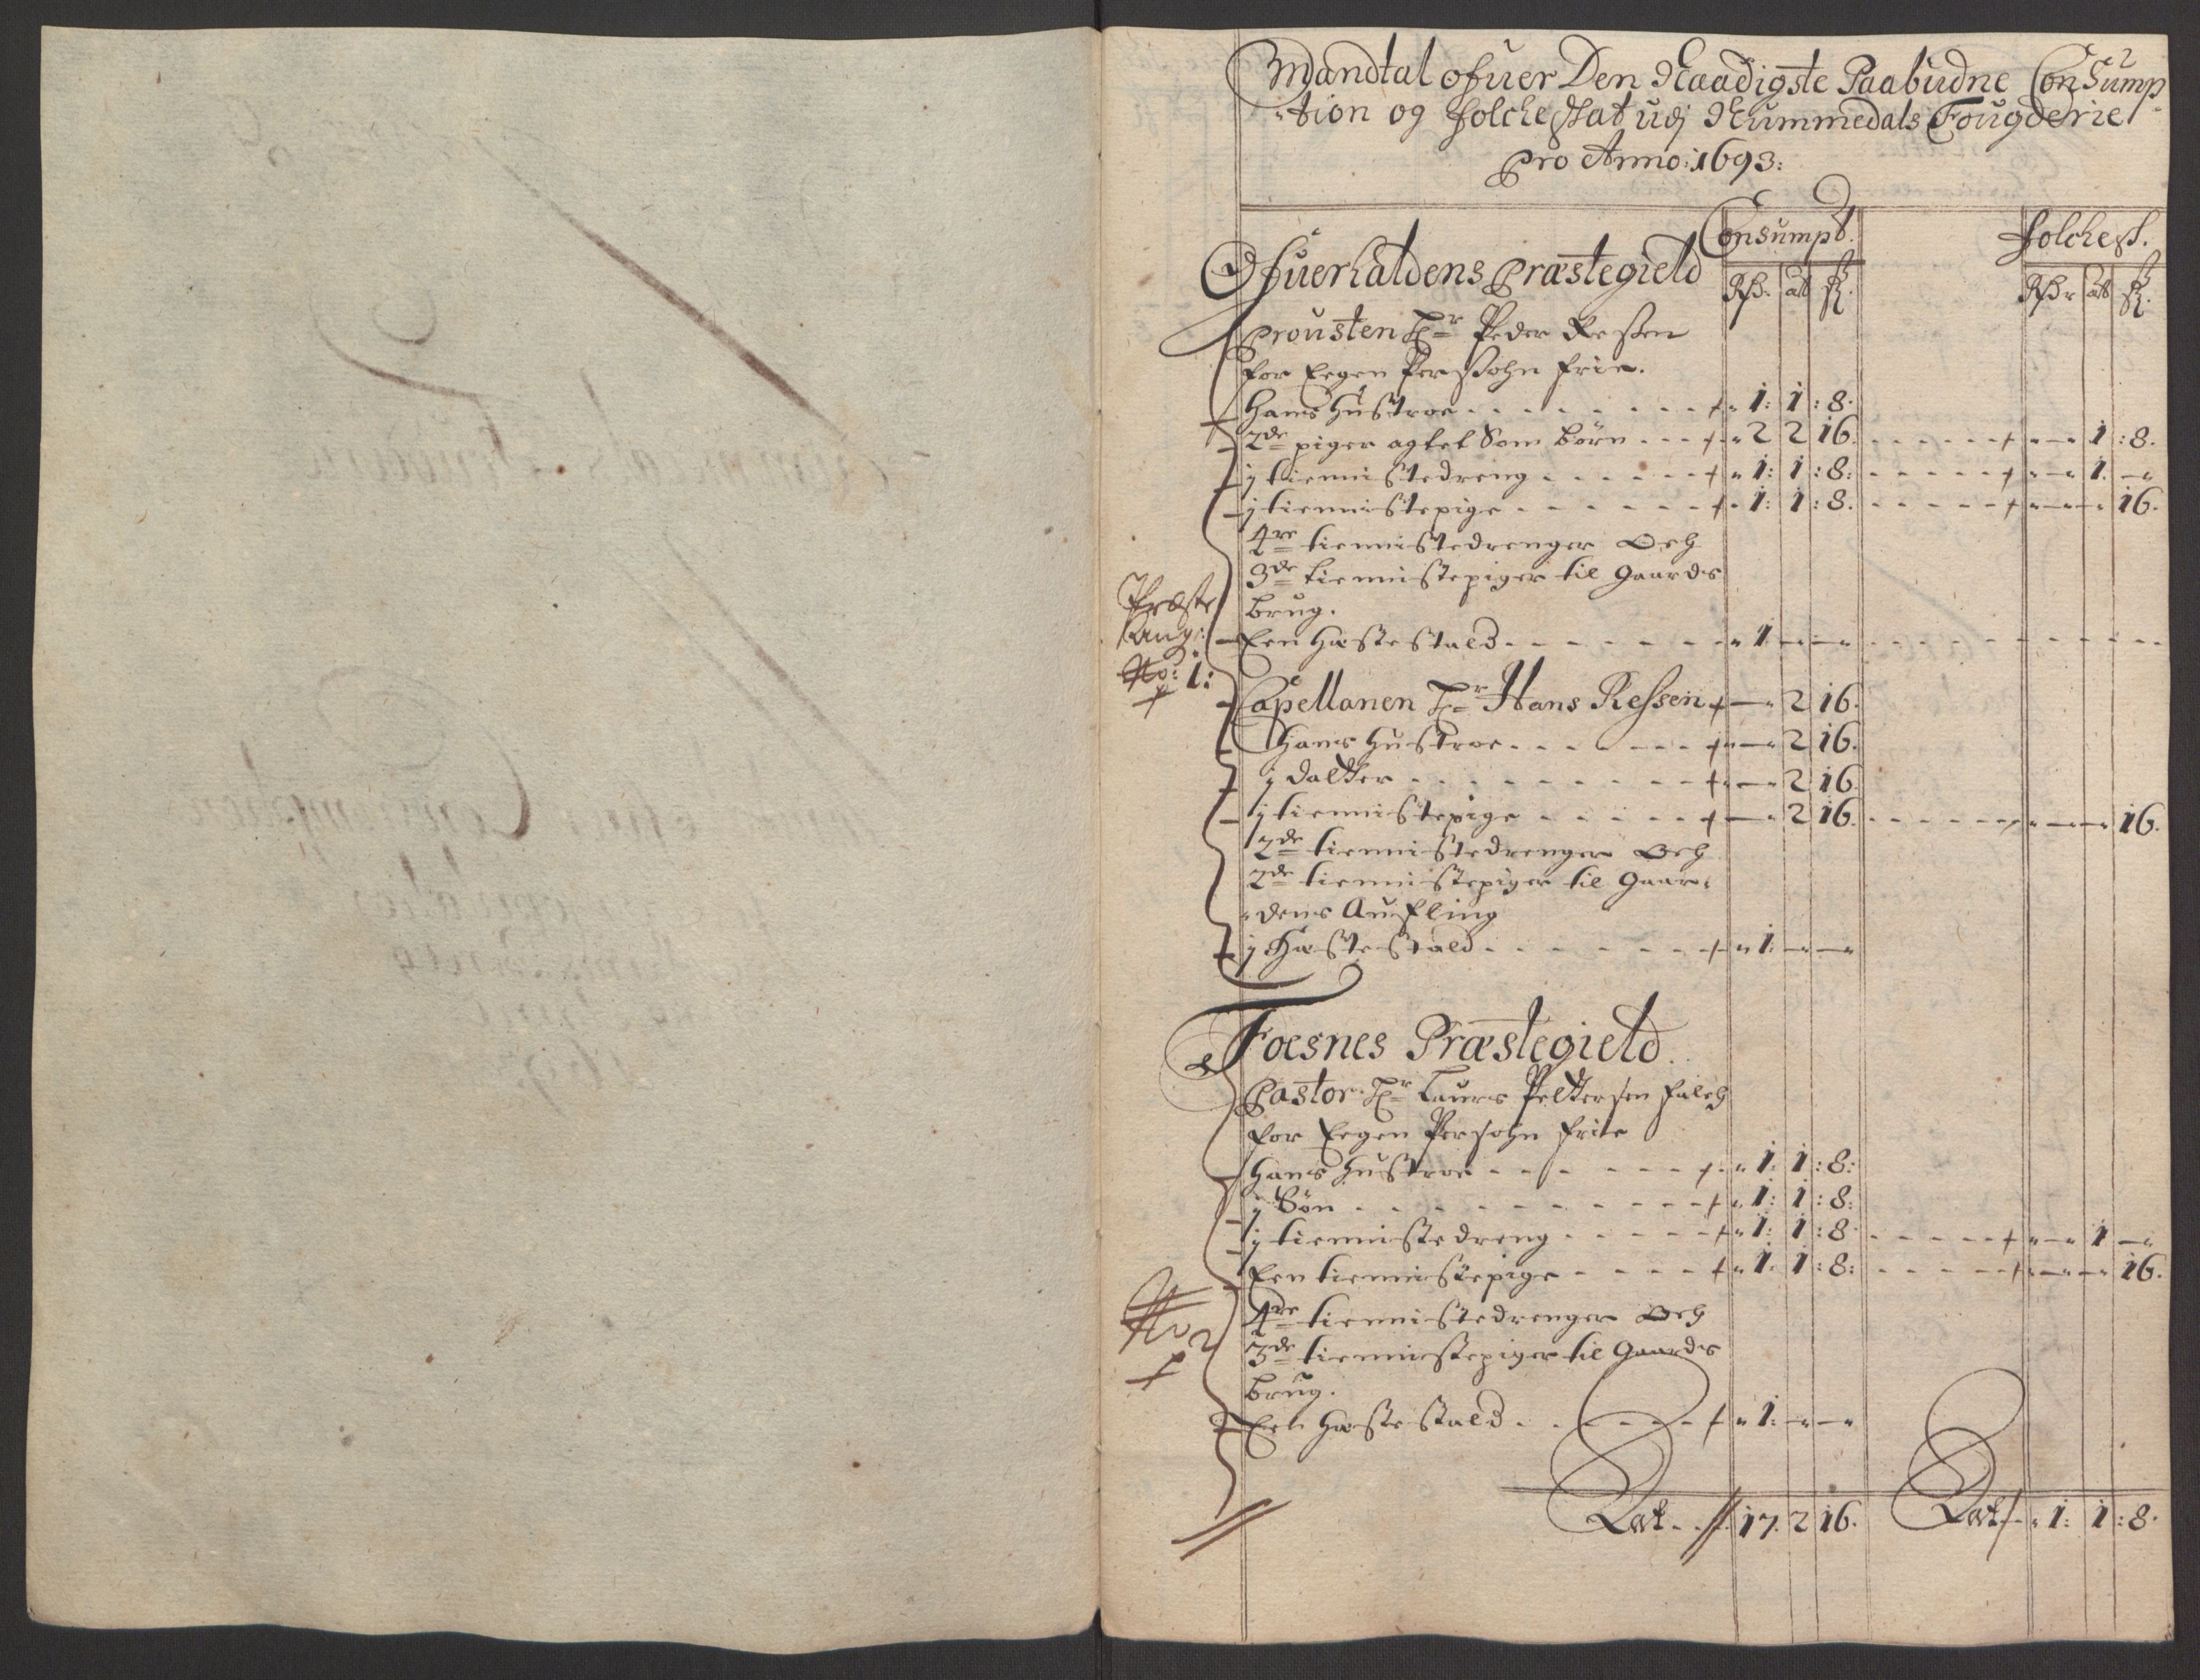 2
Mandtal ofuer Den Naadigste Paabudne Consump
-tion og folcheskat udj Nummedals Fougderie
Pro Anno: 1693:
Consumpt. folchesk.
Ofuerhaldens Præstegield Rdr. ort sk. Rdr ort sk.
Prousten Hr Peder Ressen
for Eegen Perssohn frie.
Hans Hustroe - - - " 1: 1 : 8.
2de piger agtet Som børn - - - " 2 2 16. - - - " — 1 : 8.
j tiennistedreng - - - " 1: 1 : 8: - - - " — 1. —
j tiennistepige - - - " 1: 1 : 8. - - - " — — 16.
4re tiennistedrenger Och
3de tiennistepiger til Gaards
brug.
Præste
No: 1:
Een Hæste stald - - - " 1 — —
Capellanen Hr Hans Ressen — 2 16.
Hans Hustroe - - - — 2 16.
j datter - - - — 2 16
j tiennistepige - - - — 2 16. - - - — — 16.
2de tiennistedrenger Och
2de tiennistepiger til Gaar-
-dens Aufling
j Hæste stald - - - " 1. — —
Foesnes Præstegield
Pastor Hr Laurs Pettersen falch
for Eegen Persohn friie
Hans Hustroe - - - " 1. 1 : 8:
j Søn - - - " 1: 1 : 8:
j tienniste dreng - - - " 1: 1 : 8 - - - " — 1 —
Een tiennistepige - - - " 1. 1 : 8: - - - — — 16.
No 2
4re tiennistedrenger Och
3de tiennistepiger til Gaards
brug.
Een Hæste stald - - - " 1: — —
Lat. - - 17. 2 16. Lat - " 1: 1 : 8.